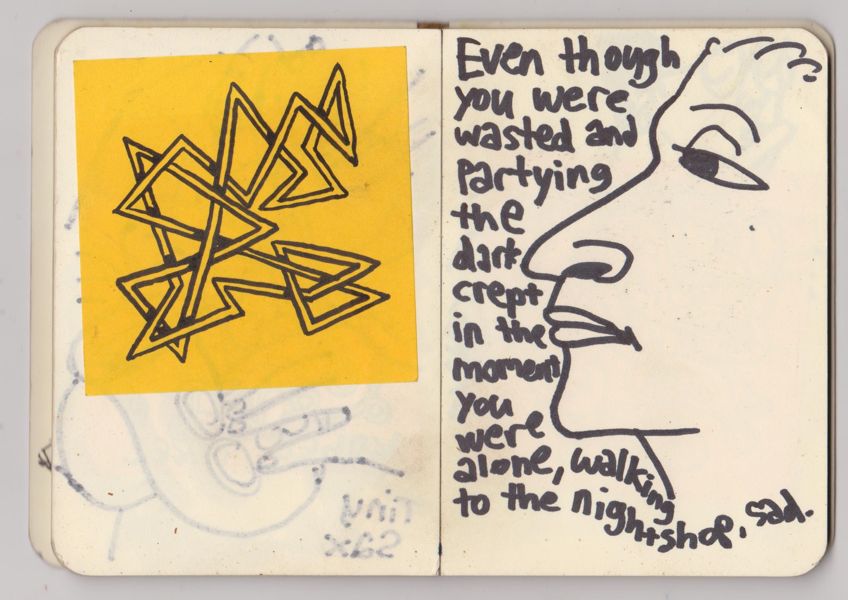 Tiny
Sax
Even though
you were
wasted and
partying
the
dark
crept
in the
moment
you
were
alone, walking
to the nightshop, sad.